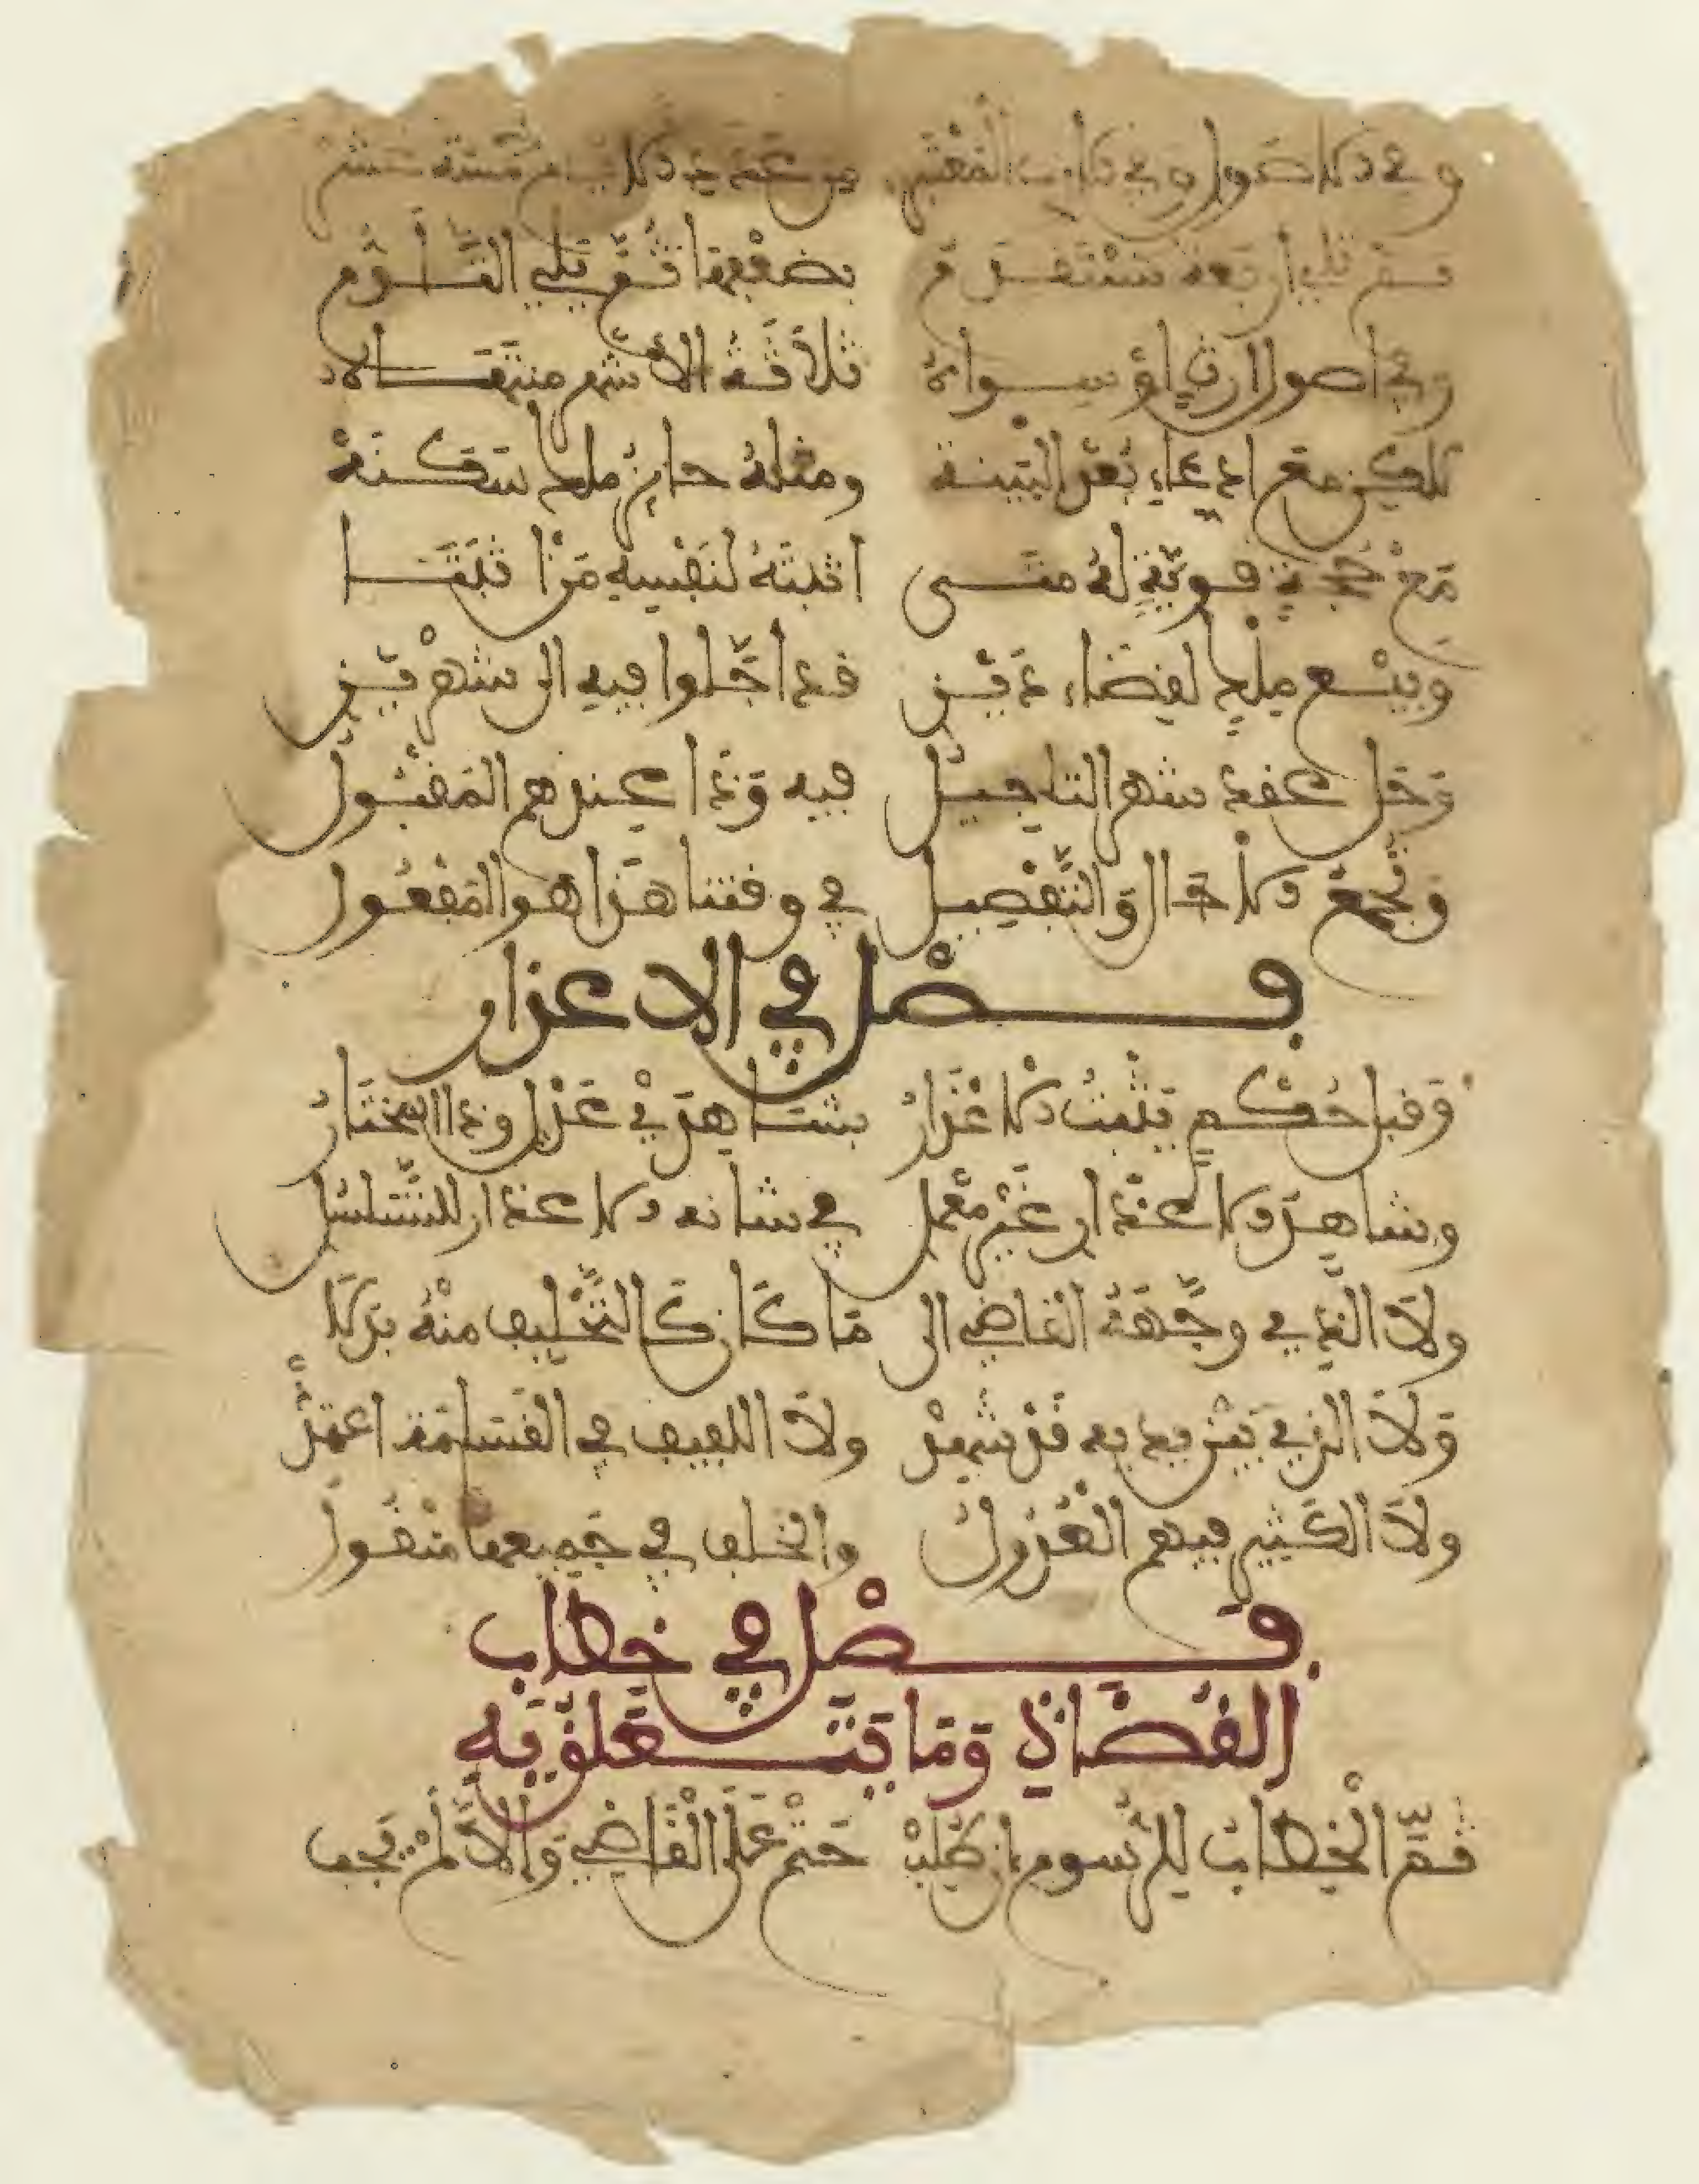 وفي الاصول وفي الارث المعتبر من عدد الايام خمسة عشر
ثم تلي اربعة تستقدم بضعفها ثم يلي التلوم
وفي اصول ارث او سواه ثلاثة الاشهر منتهاه
لكن مع ادعاء بعد البينه ومثله حائز ملك سكنه
مع حجة قوية له متى اثبته لنفسه من اثبتا
وبيع ملك لقضاء دين قد اجلوا فيه الى شهرين
وحل عقد شهر التاجيل فيه وذا عندهم المقبول
وتجمع الاجال والتفصيل في وقتنا هذا هو المعمول
فصل في الاعذار
وقبل حكم يثبت الاعذار بشاهدي عدل وذا المختار
وشاهد الاعذار غير معمل في شانه الاعذار للتسلسل
ولا الذي وجهه القاضي الى ما كان كالتحليف منه بدلا
ولا الذي بين يديه قد شهد ولا اللفيف في القسامة اعتمد
ولا الكثير فيهم العدول والخلف في جميعها منقول
فصل في خطاب
القضاة وما يتعلق به
ثم الخطاب للرسوم ان طلب حتم على القاضي والا لم يجب